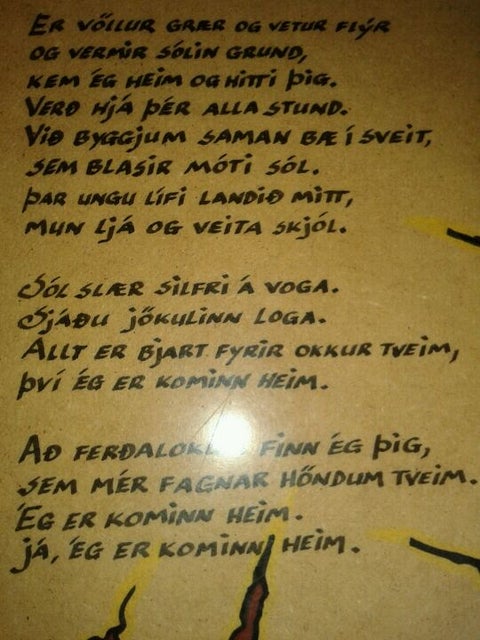 Er völlur grær og vetur flýr
og vermir sólin grund,
kem ég heim og hitti þig.
Verð hjá þér alla stund.
Við byggjum saman bæ í sveit,
sem blasir móti sól.
Þar ungu lífi landið mitt,
mun ljá og veita skjól.
Sól slær silfri á voga.
Sjáðu jökulinn loga.
Allt er bjart fyrir okkur tveim,
því ég er kominn heim.
Að finn ég þig,
sem mér fagnar höndum tveim.
Ég er kominn heim.
Já, ég er kominn heim.